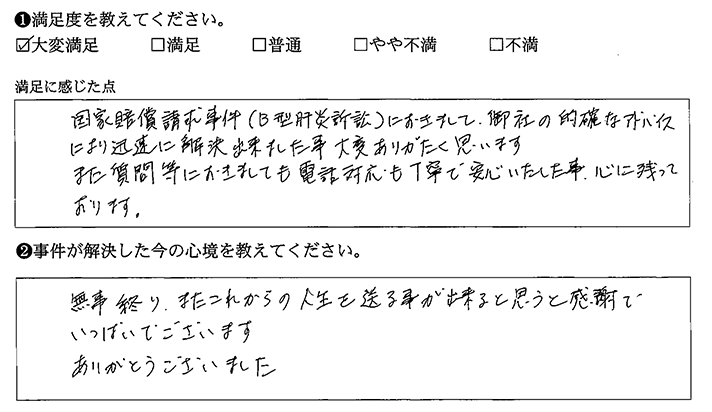 ❶満足度を教えてください。
☑大変満足 □満足 □普通 □やや不満 □不満
満足に感じた点
国家賠償請求事件(B型肝炎訴訟)におきまして、御社の的確なアドバイス
により迅速に解決出来ました事大変ありがたく思います
また質問等におきましても電話対応も丁寧で安心いたした事、心に残って
おります。
❷事件が解決した今の心境を教えてください。
無事終り、またこれからの人生を送る事が出来ると思うと感謝で
いっぱいでございます
ありがとうございました